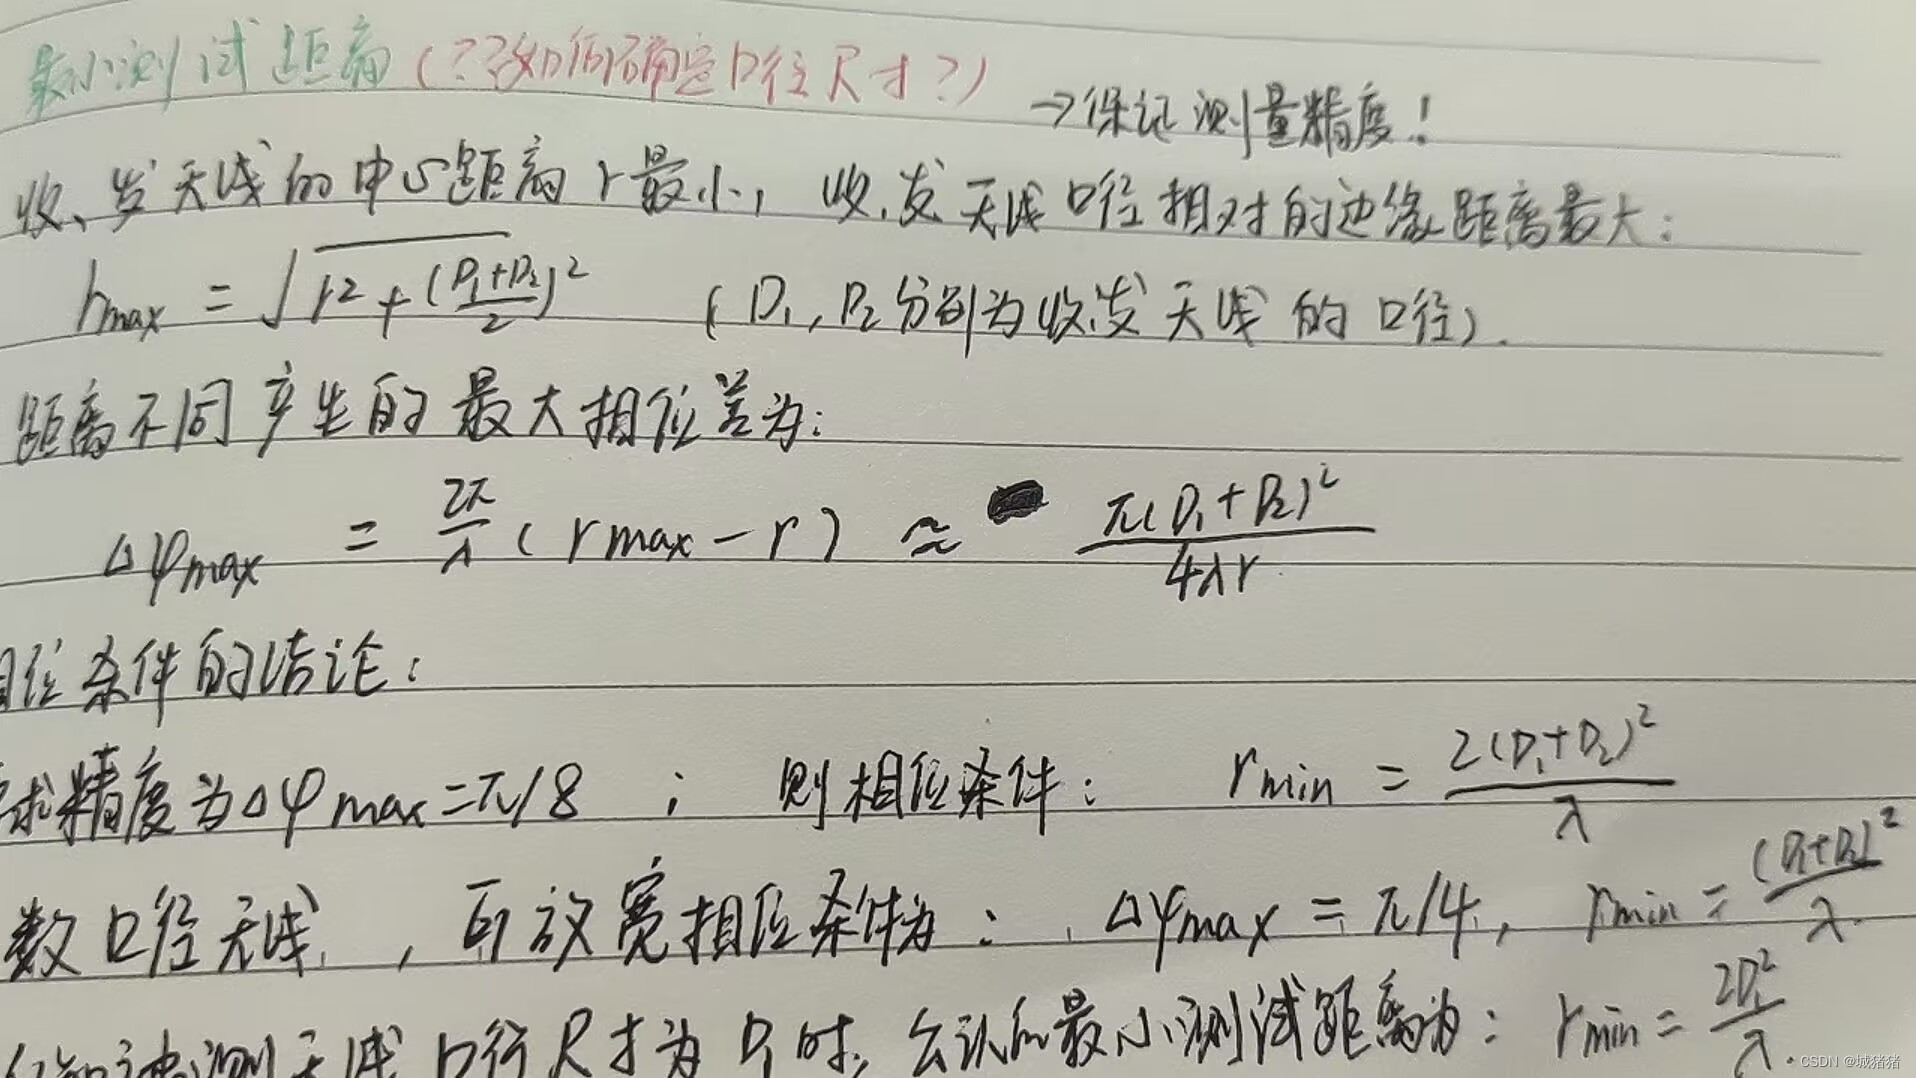 最小测试距离(??如何确定口径尺寸?)
→保证测量精度!
收、发天线的中心距离r最小,收、发天线口径相对的边缘距离最大:
rmax = √(r²+((D₁+D₂)/2)²) (D₁,D₂分别为收发天线的口径).
距离不同产生的最大相位差为:
Δφmax = 2π/λ (rmax-r) ≈ π(D₁+D₂)²/4λr
相位条件的结论:
求精度为Δφmax=π/8 ; 则相位条件: rmin = 2(D₁+D₂)²/λ
数口径天线,可放宽相位条件为: Δφmax = π/4, rmin = (D₁+D₂)²/λ.
被测天线口径尺寸为D₁时,公认的最小测试距离为: rmin = 2D₁²/λ.
CSDN @城猪猪